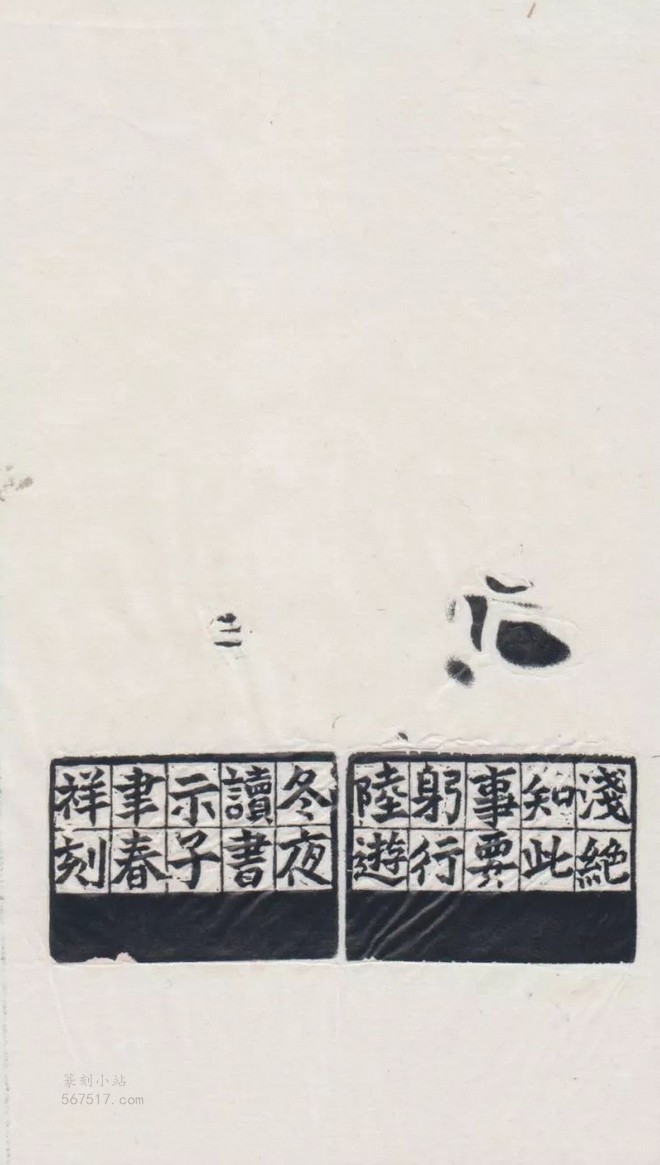 淺絶
知此
事要
躬行
陸遊
冬夜
讀書
示子
聿春
祥刻
篆刻小站
567517.com